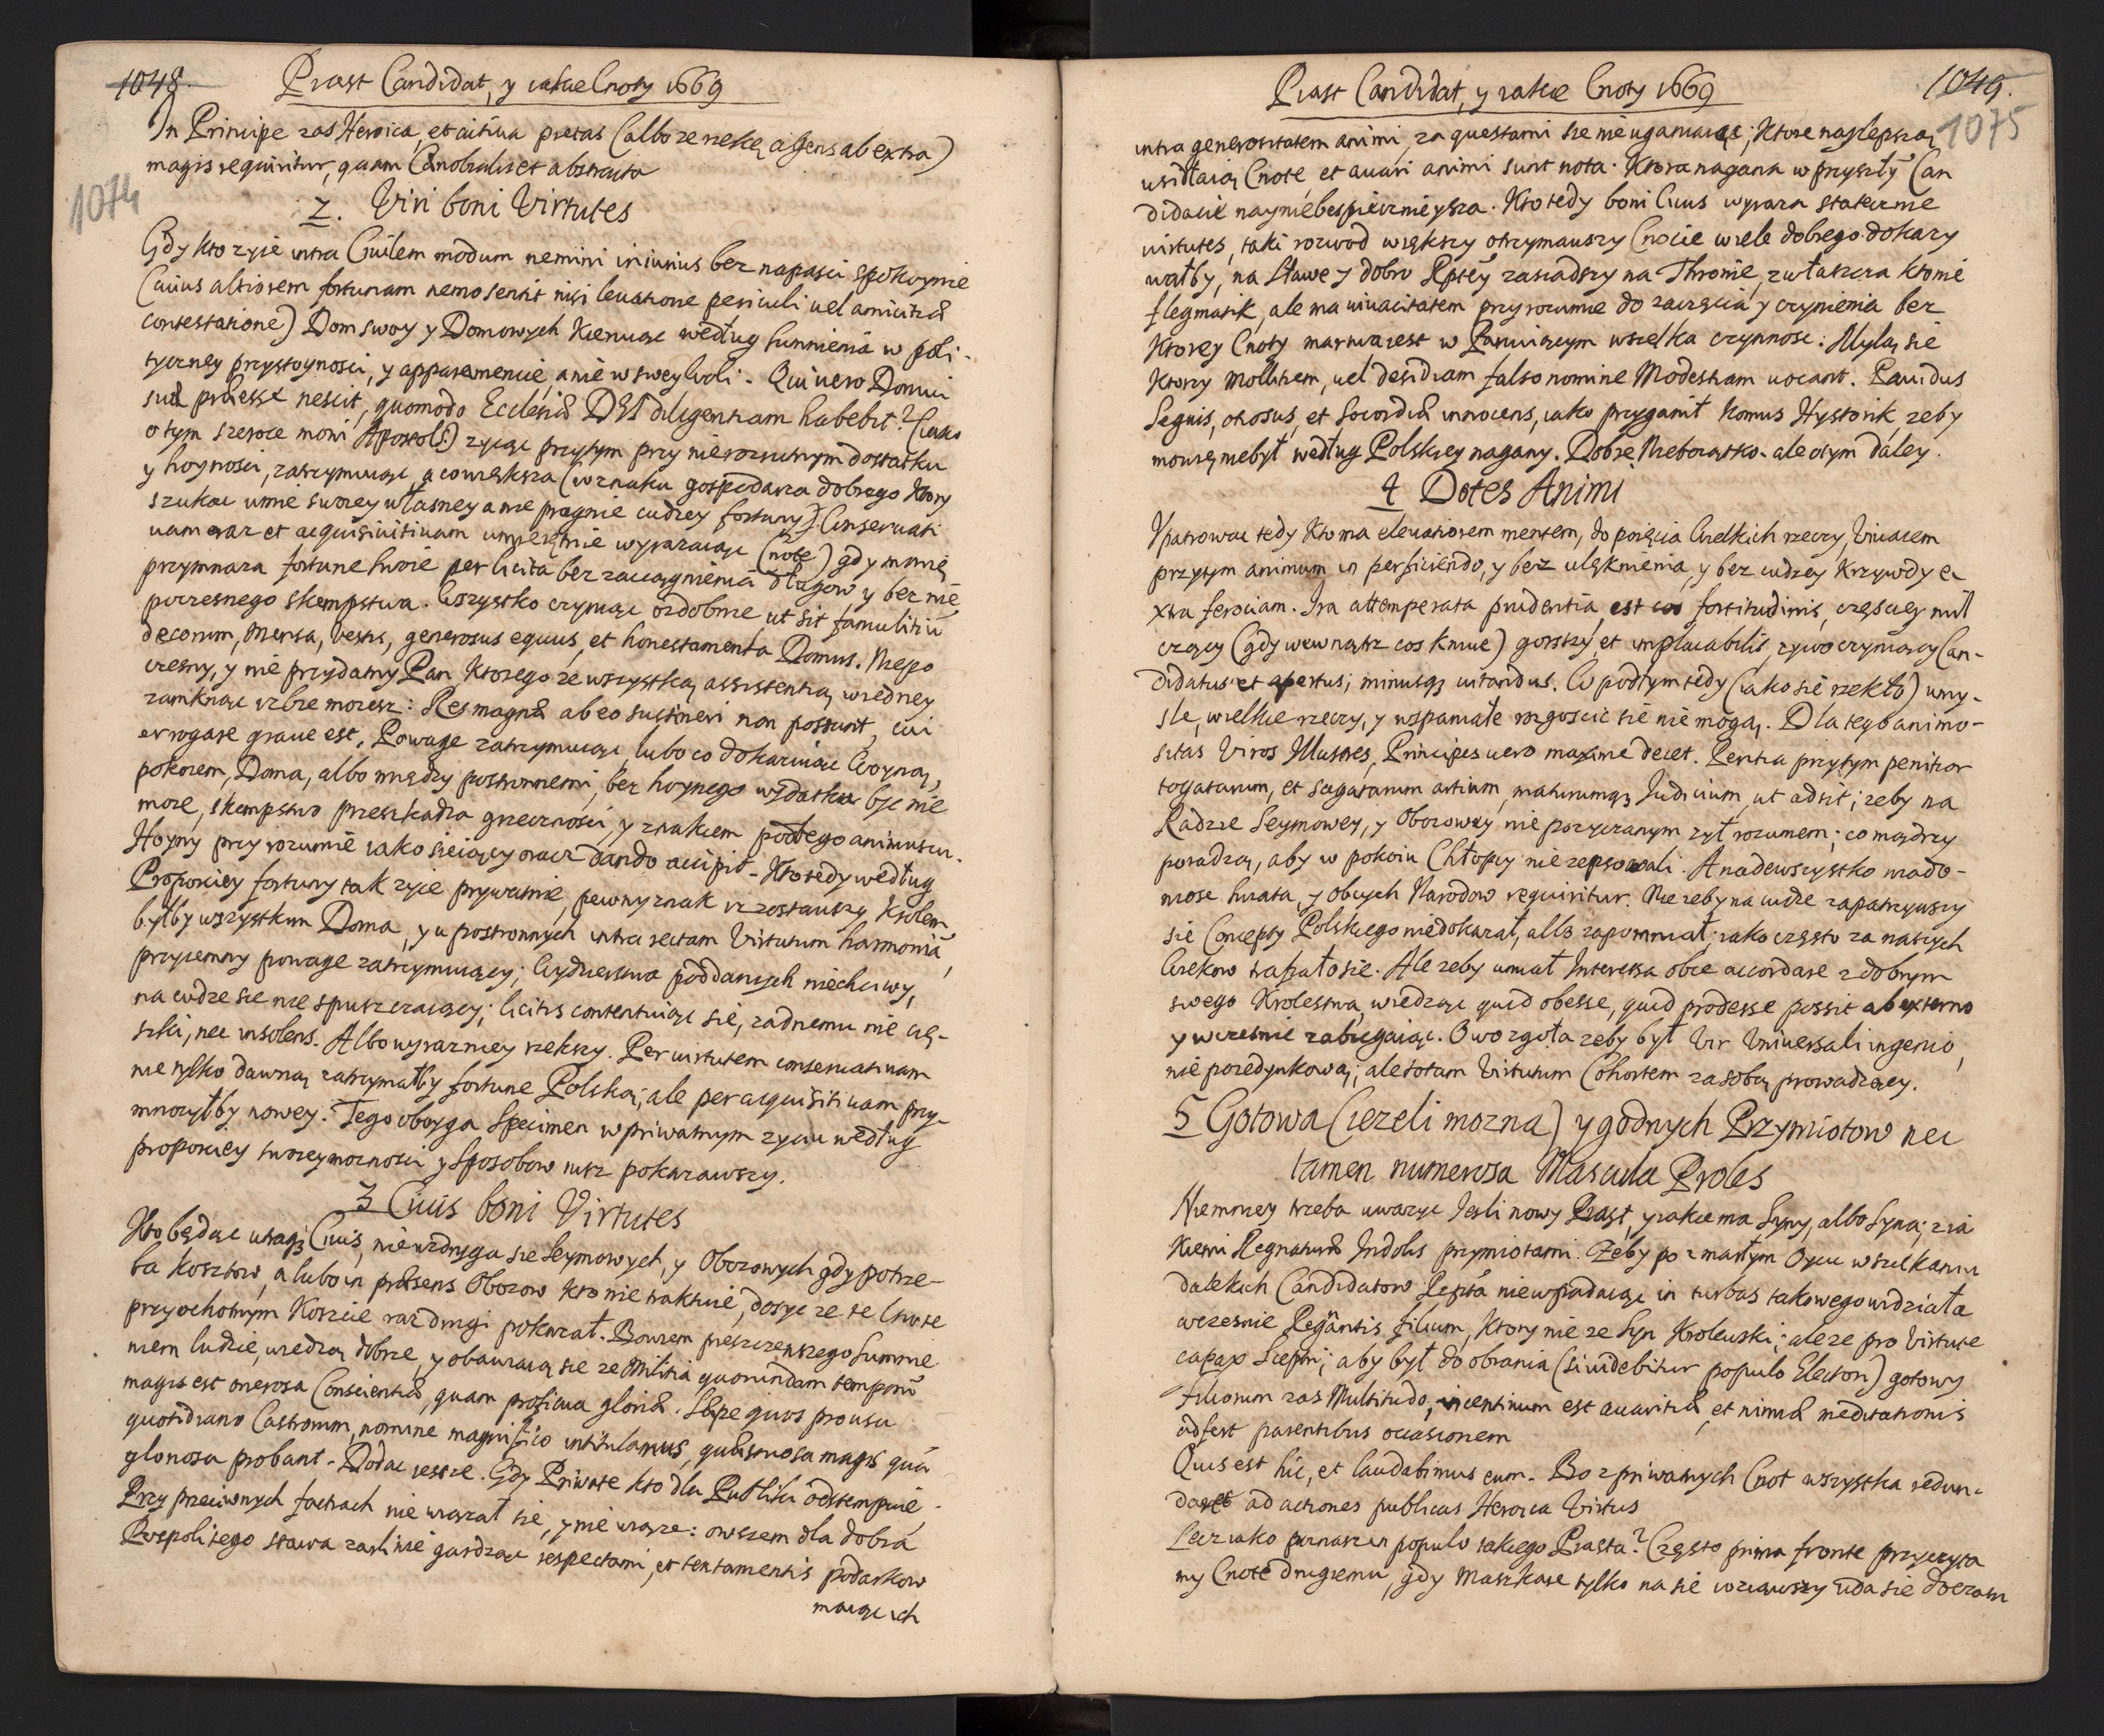 1048.
Piast Candidat, y iakie Cnoty 1669
1074
In Principe zas Heroica, et activa pietas (albo ze rzekę agens ab extra)
magis requiritur, quam Cenobialis et abstracta
2. Viri boni Virtutes
Gdy kto zyie intra Civilem modum nemini iniurius bez napasci spokoynie
(cuius altiorem fortunam nemo sentit nisi leuatione periculi uel amicitiæ
contestatione) Dom swoy y Domowych kieruiąc według sumnienia w poli-
tyczney przystoynosci, y apparamencie, a nie w swey woli. Qui uero Domui
suæ præesse nescit, quomodo Ecclesiæ DEI diligentiam habebit? (iako
o tym szeroce mowi Apostoł) zyiąc przytym przy nierozrutnym dostatku
y hoynosci, zatrzymuiąc, a co większa (w znaku gospodarza dobrego ktory
szukac umie swoiey własney a nie pragnie cudzey fortuny) Conservati
uam oraz et acquisiuitiuam umieiętnie wyrazaiąc (notę) gdy mnie
przymnaza fortune swoie per licita bez zaciągnienia długow y bez nie
poczesnego skempstwa. Wszystko czyniąc ozdobnie ut sit famulitiū
decorum, Mensa, Vestis, generosus equus, et honestamenta Domus. Niepo
czesny, y nie przydatny Pan, ktorego ze wszystką assistentią w iedney
zamknąc izbie mozesz: Res magnæ ab eo sustineri non possunt, cui
erogare graue est. Powage zatrzymuiąc, lubo co dokazuiąc Woyną,
pokoiem, Doma, albo między postronnemi, bez hoynego wydatku byc nie
moze, skempstwo przeszkadza grzecznosci, y znakiem podłego animuszu.
Hoyny przy rozumie iako sieiący oracz dando accipit. Kto tedy według
Proporciey fortuny tak zyie prywatnie, pewny znak iz zostawszy Krolem
byłby wszystkim Doma, y u postronnych intra rectam Virtutum harmoniā,
przyiemny powage zatrzymuiący; Wydzierstwa poddanych niechciwy,
na cudze sie nie spuszczaiący; licitis contentuiąc się, zadnemu nie cię-
szki, nec insolens. Albo wyrazniey rzekszy. Per uirtutem conseruatiuam
nie tylko dawną zatrzymałby fortune Polską, ale per acquisitiuam przy
mnozyłby nowey. Tego oboyga Specimen w priwatnym zyciu według
proporciey swoiey moznosci y sposobow iusz pokazawszy.
3 Ciuis boni Virtutes
Kto będąc utriusq Ciuis, nie wzdryga sie Seymowych, y Obozowych gdy potrze-
ba kosztow, a lubo in præsens Obozow kto nie traktuie, dosyc ze te Cnote
przy ochotnym koszcie raz drugi pokazał. Bowiem przeszczerszego Summie
niem ludzie, wiedzą dobrze, y obawiaią sie ze Militia quorundam temporū
magis est onerosa Conscientiæ, quam proficua gloriæ. Sæpe quos pro usu
quotidiano Castrorum, nomine magnifico intitulamus, quæstuosa magis quā
gloriosa probant. Dodac ieszcze. Gdy Priwate kto dla Publiki odstempuie,
Przy przeciwnych factiach nie wiązał sie, y nie wiąze: owszem dla dobra
Pospolitego stawa zarliwie gardząc respectami, et tentamentis podarkow
maiąc ich
Piast Candidat, y iakie Cnoty 1669
1049.
1075
intra generositatem animi, za questami sie nie uganiaiąc; ktore naylepszą
uwidłaią Cnote, et auari animi sunt nota. Ktora nagana w przyszły Can
didacie nayniebespiecznieysza. Kto tedy boni Ciuis wyraza statecznie
uirtutes, taki rozwod większy otrzymawszy Cnocie wiele dobrego dokazy
wałby, na sławe y dobro Rptey zasiadszy na Thronie, zwłaszcza kto nie
flegmatik, ale ma uiuacitatem przy rozumie do zaczęcia y czynienia bez
ktorey Cnoty martwa iest w Panuiącym wszelka czynnosc: Mylą sie
ktorzy Mollitiem, uel desidiam falso nomine Modestiam uocant. Pauidus
Segnis, otiosus, et Socordiæ innocens, iako przyganił komus Hystorik, zeby
mowię niebył według Polskiey nagany. Dobre Nieboiątko. ale o tym daley.
4 Dotes Animi
Upatrowac tedy kto ma eleuatiorem mentem, do poięcia Wielkich rzeczy, Viuacem
przytym animum in perficiendo, y bez ulęknienia, y bez cudzey krzywdy e-
xtra ferociam. Ira attemperata prudentia, est cos fortitudinis, częsciey mil
czący (gdy wewnątrz cos knuie) gorszy, et implacabilis, zywo czyniący Can-
didatus et apertus; minusq uitandus. W podłym tedy (iako sie rzekło) umy-
sle, wielkie rzeczy, y wspaniałe rozgoscic sie nie mogą. Dla tego animo-
sitas Viros Illustres, Principes uero maxime decet. Peritia przytym penitior
togatarum, et sagatarum artium, maturumq Judicium, ut adsit; zeby na
Radzie Seymowey, y Obozowey nie pozyczanym zył rozumem; co mądrzy
poradzą, aby w pokoiu Chłopcy nie zepsowali. A nadewszystko wiado-
mosc swiata, y obcych Narodow requiritur. Nie zeby na cudze zapatrzywszy
sie Concepty Polskiego niedokazał, albo zapomniał; iako często za naszych
Wiekow trafiało sie. Ale zeby umiał Interessa obce accordare z dobrym
swego Krolestwa, wiedząc quid obesse, quid prodesse possit ab externo
y wczesnie zabiegaiąc. Owo zgoła zeby był Vir Vniuersali ingenio,
nie poiedynkową; ale totam Virtutum Cohortem za sobą prowadzący.
5 Gotowa (iezeli mozna) y godnych Przymiotow nec
tamen numerosa Mascula Proles
Niemniey trzeba uwazyc Jesli nowy Piast, y iakie ma Syny, albo Syna; z ia
kiemi Regnaturæ Indolis przymiotami. Zeby po zmarłym Oycu w szukaniu
dalekich Candidatow Rzpta niewpadaiąc in turbas takowego widziała
wczesnie Regnantis filium, ktory nie ze Syn Krolewski; ale ze pro Virtute
capax Sceptri; aby był do obrania (si uidebitur populo Electori) gotowy
Filiorum zas Multitudo, incentiuum est auaritiæ, et nimiæ meditationis
adfert parentibus occasionem
Quis est hic, et laudabimus eum. Bo z priwatnych Cnot wszystka redun-
daret ad actiones publicas Heroica Virtus
Lecz iako poznasz in populo takiego Piasta? Często prima fronte przyczyta
my Cnote drugiemu, gdy Maszkare tylko na sie wziąwszy uda sie do czasu